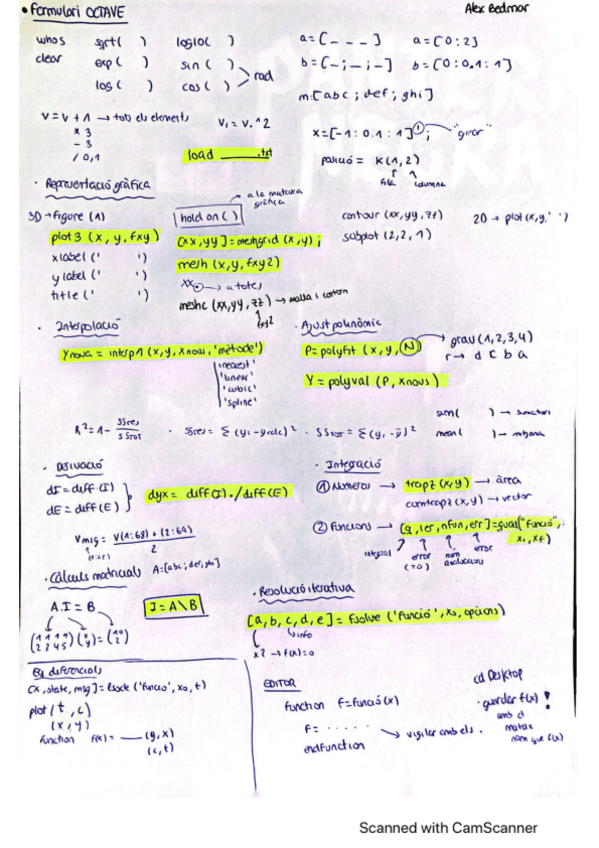 • Formulari OCTAVE
Alex Bedmar
whos sqrt( ) log10( ) a=[- - -] a=[0:2]
clear exp( ) sin( ) b=[-;-;-] b=[0:0.1:1]
log( ) cos( ) > rad
m=[abc; def; ghi]
v = v + 1 → tots els elements
* 3
- 3
/ 0,1
v₁ = v.^2
load _____.txt
x=[-1:0.1:1]'; "girar"
posició = K(1,2)
fila columna
· Representació gràfica
3D → figure (1)
plot3 (x, y, fxy)
xlabel(' ')
ylabel(' ')
title(' ')
hold on() → a la mateixa gràfica
[xx,yy]=meshgrid(x,y);
mesh(x,y,fxy2)
meshc (xx,yy,zz) → malla i contorn
fxy2
contour (xx,yy,zz)
subplot (2,2,1)
2D → plot(x,y,' ')
· Interpolació
Ynova = interp1(x,y,xnou,'mètode')
'nearest'
'linear'
'cubic'
'spline'
· Ajust polinòmic
P=polyfit (x,y,N) → grau(1,2,3,4)
r → d c b a
Y = polyval (P, xnous)
R²=1- SSres / SSTOT · SSres= Σ(yi-ycalc)² · SSTOT= Σ(yi-ȳ)²
sum( ) → sumatori
mean( ) → mitjana
· Derivació
dI = diff(I)
dE = diff(E)
dyx = diff(I)./diff(E)
Vmig = V(1:68)+(2:69) / 2
· Integració
① Números → trapz(x,y) → àrea
cumtrapz(x,y) → vector
② Funcions → [q,ier,nfun,err]=quad("funció", x₁,xf)
integral error (=0) num avaluacions error
· Càlculs matricials A=[abc; def; ghi]
A.I = B
I = A\B
· Resolució iterativa
[a,b,c,d,e] = fsolve ('funció', x₀, opcions)
info
x? → f(x)=0
Eq diferencials
[x, state, msg] = lsode ('funcio', x₀, t)
plot(t,c)
(x,y)
function f(x)= ___ (y,x)
(c,t)
EDITOR
function f=funció(x)
F= . . . . . → vigilar amb els .
endfunction
cd Desktop
· guardar f(x) !
amb el
mateix
nom que f(x)
Scanned with CamScanner